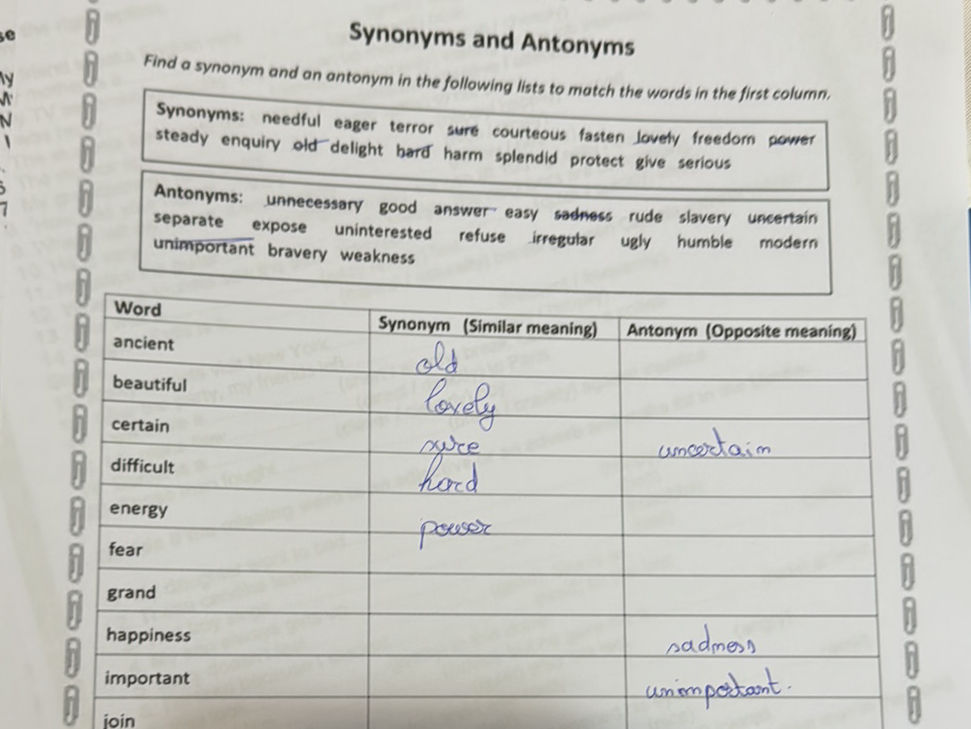 se
Synonyms and Antonyms
Find a synonym and an antonym in the following lists to match the words in the first column.
Synonyms: needful eager terror sure courteous fasten lovely freedom power
steady enquiry old delight hard harm splendid protect give serious
Antonyms: unnecessary good answer easy sadness rude slavery uncertain
separate expose uninterested refuse irregular ugly humble modern
unimportant bravery weakness
Word Synonym (Similar meaning) Antonym (Opposite meaning)
ancient old
beautiful lovely
certain sure uncertain
difficult hard
energy power
fear
grand
happiness sadness
important unimportant.
join